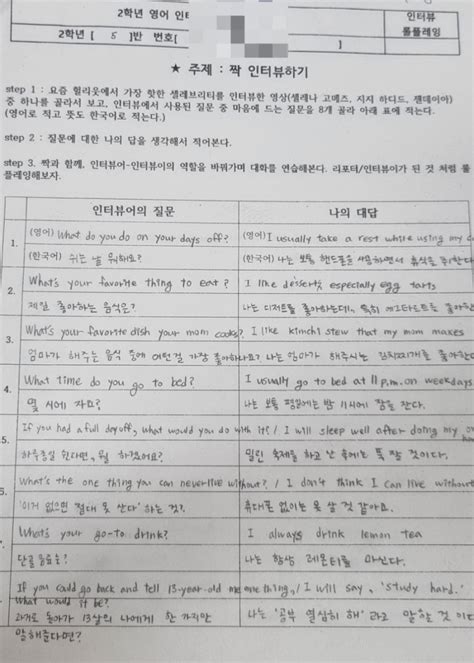 2학년 영어 인터
인터뷰
롤플레잉
2학년 [ 5 ]반 번호[ ]
★ 주제 : 짝 인터뷰하기
step 1 : 요즘 헐리웃에서 가장 핫한 셀레브리티를 인터뷰한 영상(셀레나 고메즈, 지지 하디드, 젠데이아)
중 하나를 골라서 보고, 인터뷰에서 사용된 질문 중 마음에 드는 질문을 8개 골라 아래 표에 적는다.
(영어로 적고 뜻도 한국어로 적는다.)
step 2 : 질문에 대한 나의 답을 생각해서 적어본다.
step 3. 짝과 함께, 인터뷰어-인터뷰이의 역할을 바꿔가며 대화를 연습해본다. 리포터/인터뷰이가 된 것 처럼 롤
플레잉해보자.
인터뷰어의 질문
나의 대답
1.
(영어) What do you do on your days off?
(영어) I usually take a rest while using my
(한국어) 쉬는 날 뭐해요?
(한국어) 나는 보통 핸드폰을 사용하면서 휴식을
2.
What's your favorite thing to eat?
I like desserts, especially egg tarts
제일 좋아하는 음식은?
나는 디저트를 좋아하는데, 특히 에그타르트를
3.
What's your favorite dish your mom cooks?
I like kimchi stew that my mom makes
엄마가 해주는 음식 중에 어떤걸 가장 좋아하나요?
나는 엄마가 해주시는 김치찌개를
4.
What time do you go to bed?
I usually go to bed at 11 p.m. on weekdays
몇 시에 자요?
나는 보통 평일에는 밤 11시에 잠을 잔다.
5.
If you had a full day off, what would you do with it?
I will sleep well after doing my
하루종일 쉰다면, 뭘 하겠어요?
밀린 숙제를 하고 난 후에는 푹 잘 것이다.
What's the one thing you can never live without?
I don't think I can live without
'이거 없으면 절대 못 산다' 하는 것?
휴대폰 없이는 못 살 것 같아요.
What's your go-to drink?
I always drink lemon tea
단골 음료는?
나는 항상 레몬티를 마신다.
If you could go back and tell 13-year-old me one thing,
What would it be?
I will say, 'study hard.'
과거로 돌아가 13살의 나에게 한 가지만
말해준다면?
나는 '공부 열심히 해' 라고 말할 것